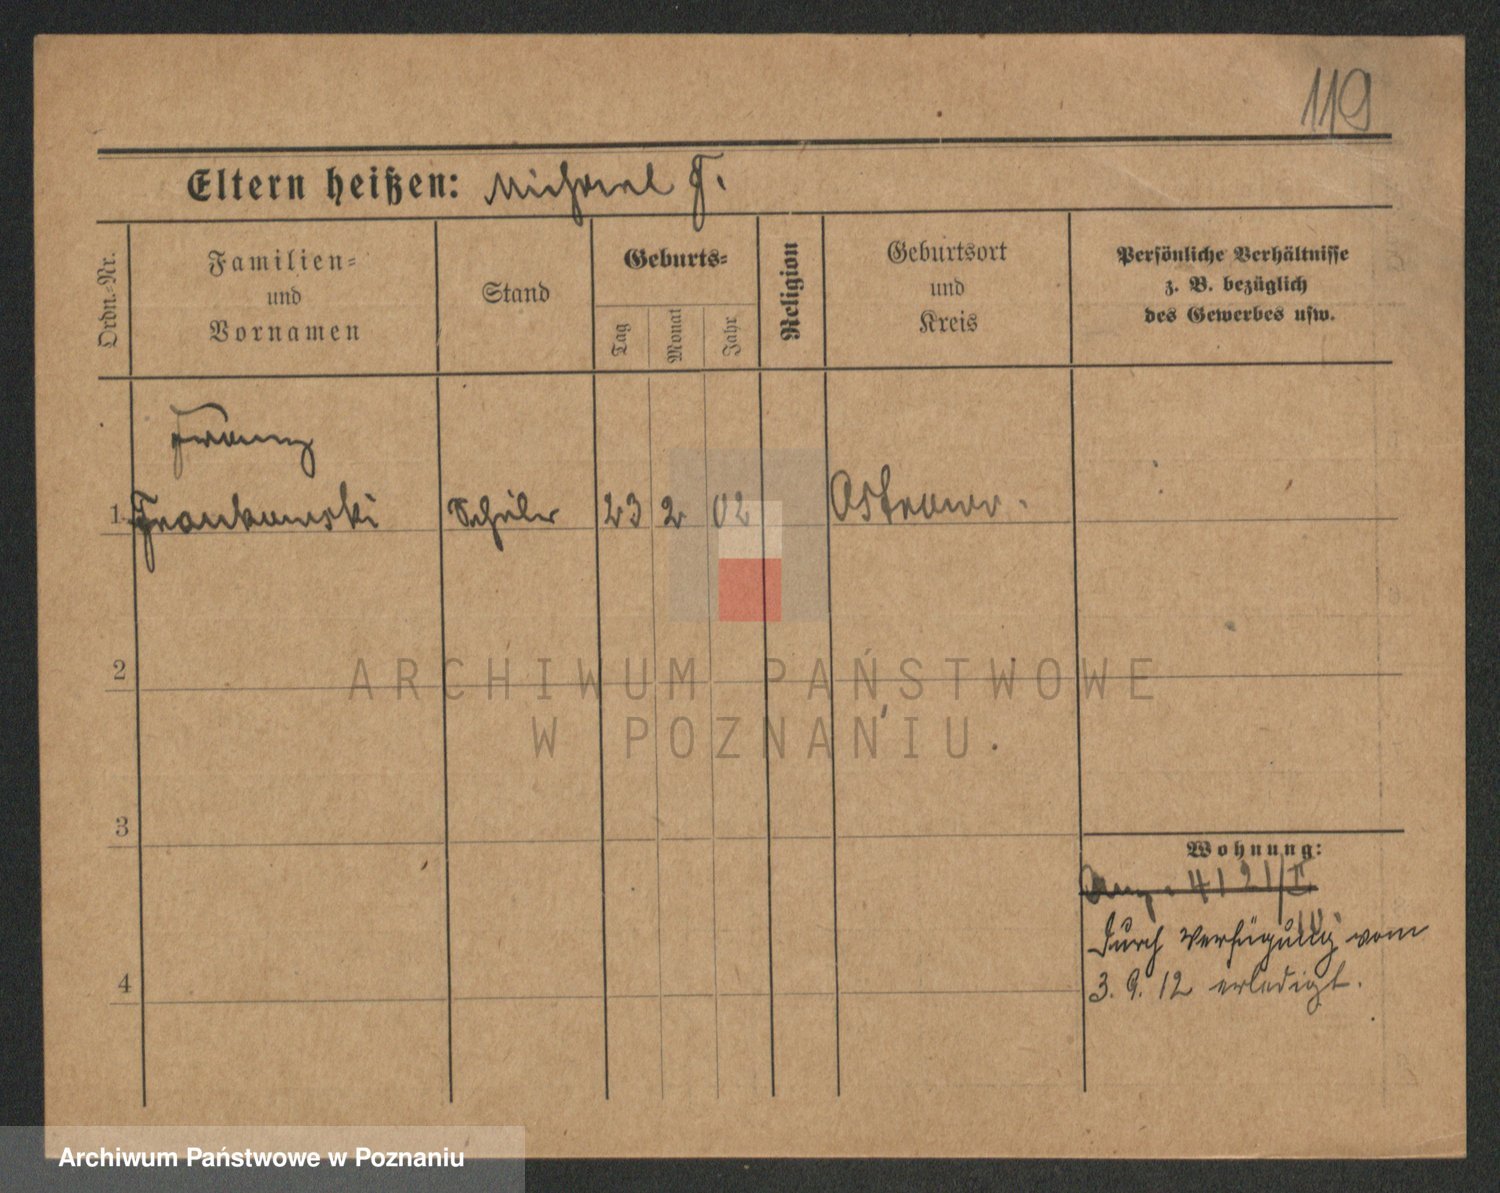 119
Eltern heißen: Michael F.
Ordn.-Nr.
Familien-
und
Vornamen
Stand
Geburts-
Tag
Monat
Jahr
Religion
Geburtsort
und
Kreis
Persönliche Verhältnisse
z. B. bezüglich
des Gewerbes usw.
Franz
1 Frankowski Schüler 23 2 02 Ostrowo.
2
3
4
Wohnung:
4121/I
Durch Verfügung vom
3. 9. 12 erledigt.
ARCHIWUM PAŃSTWOWE
W POZNANIU
Archiwum Państwowe w Poznaniu